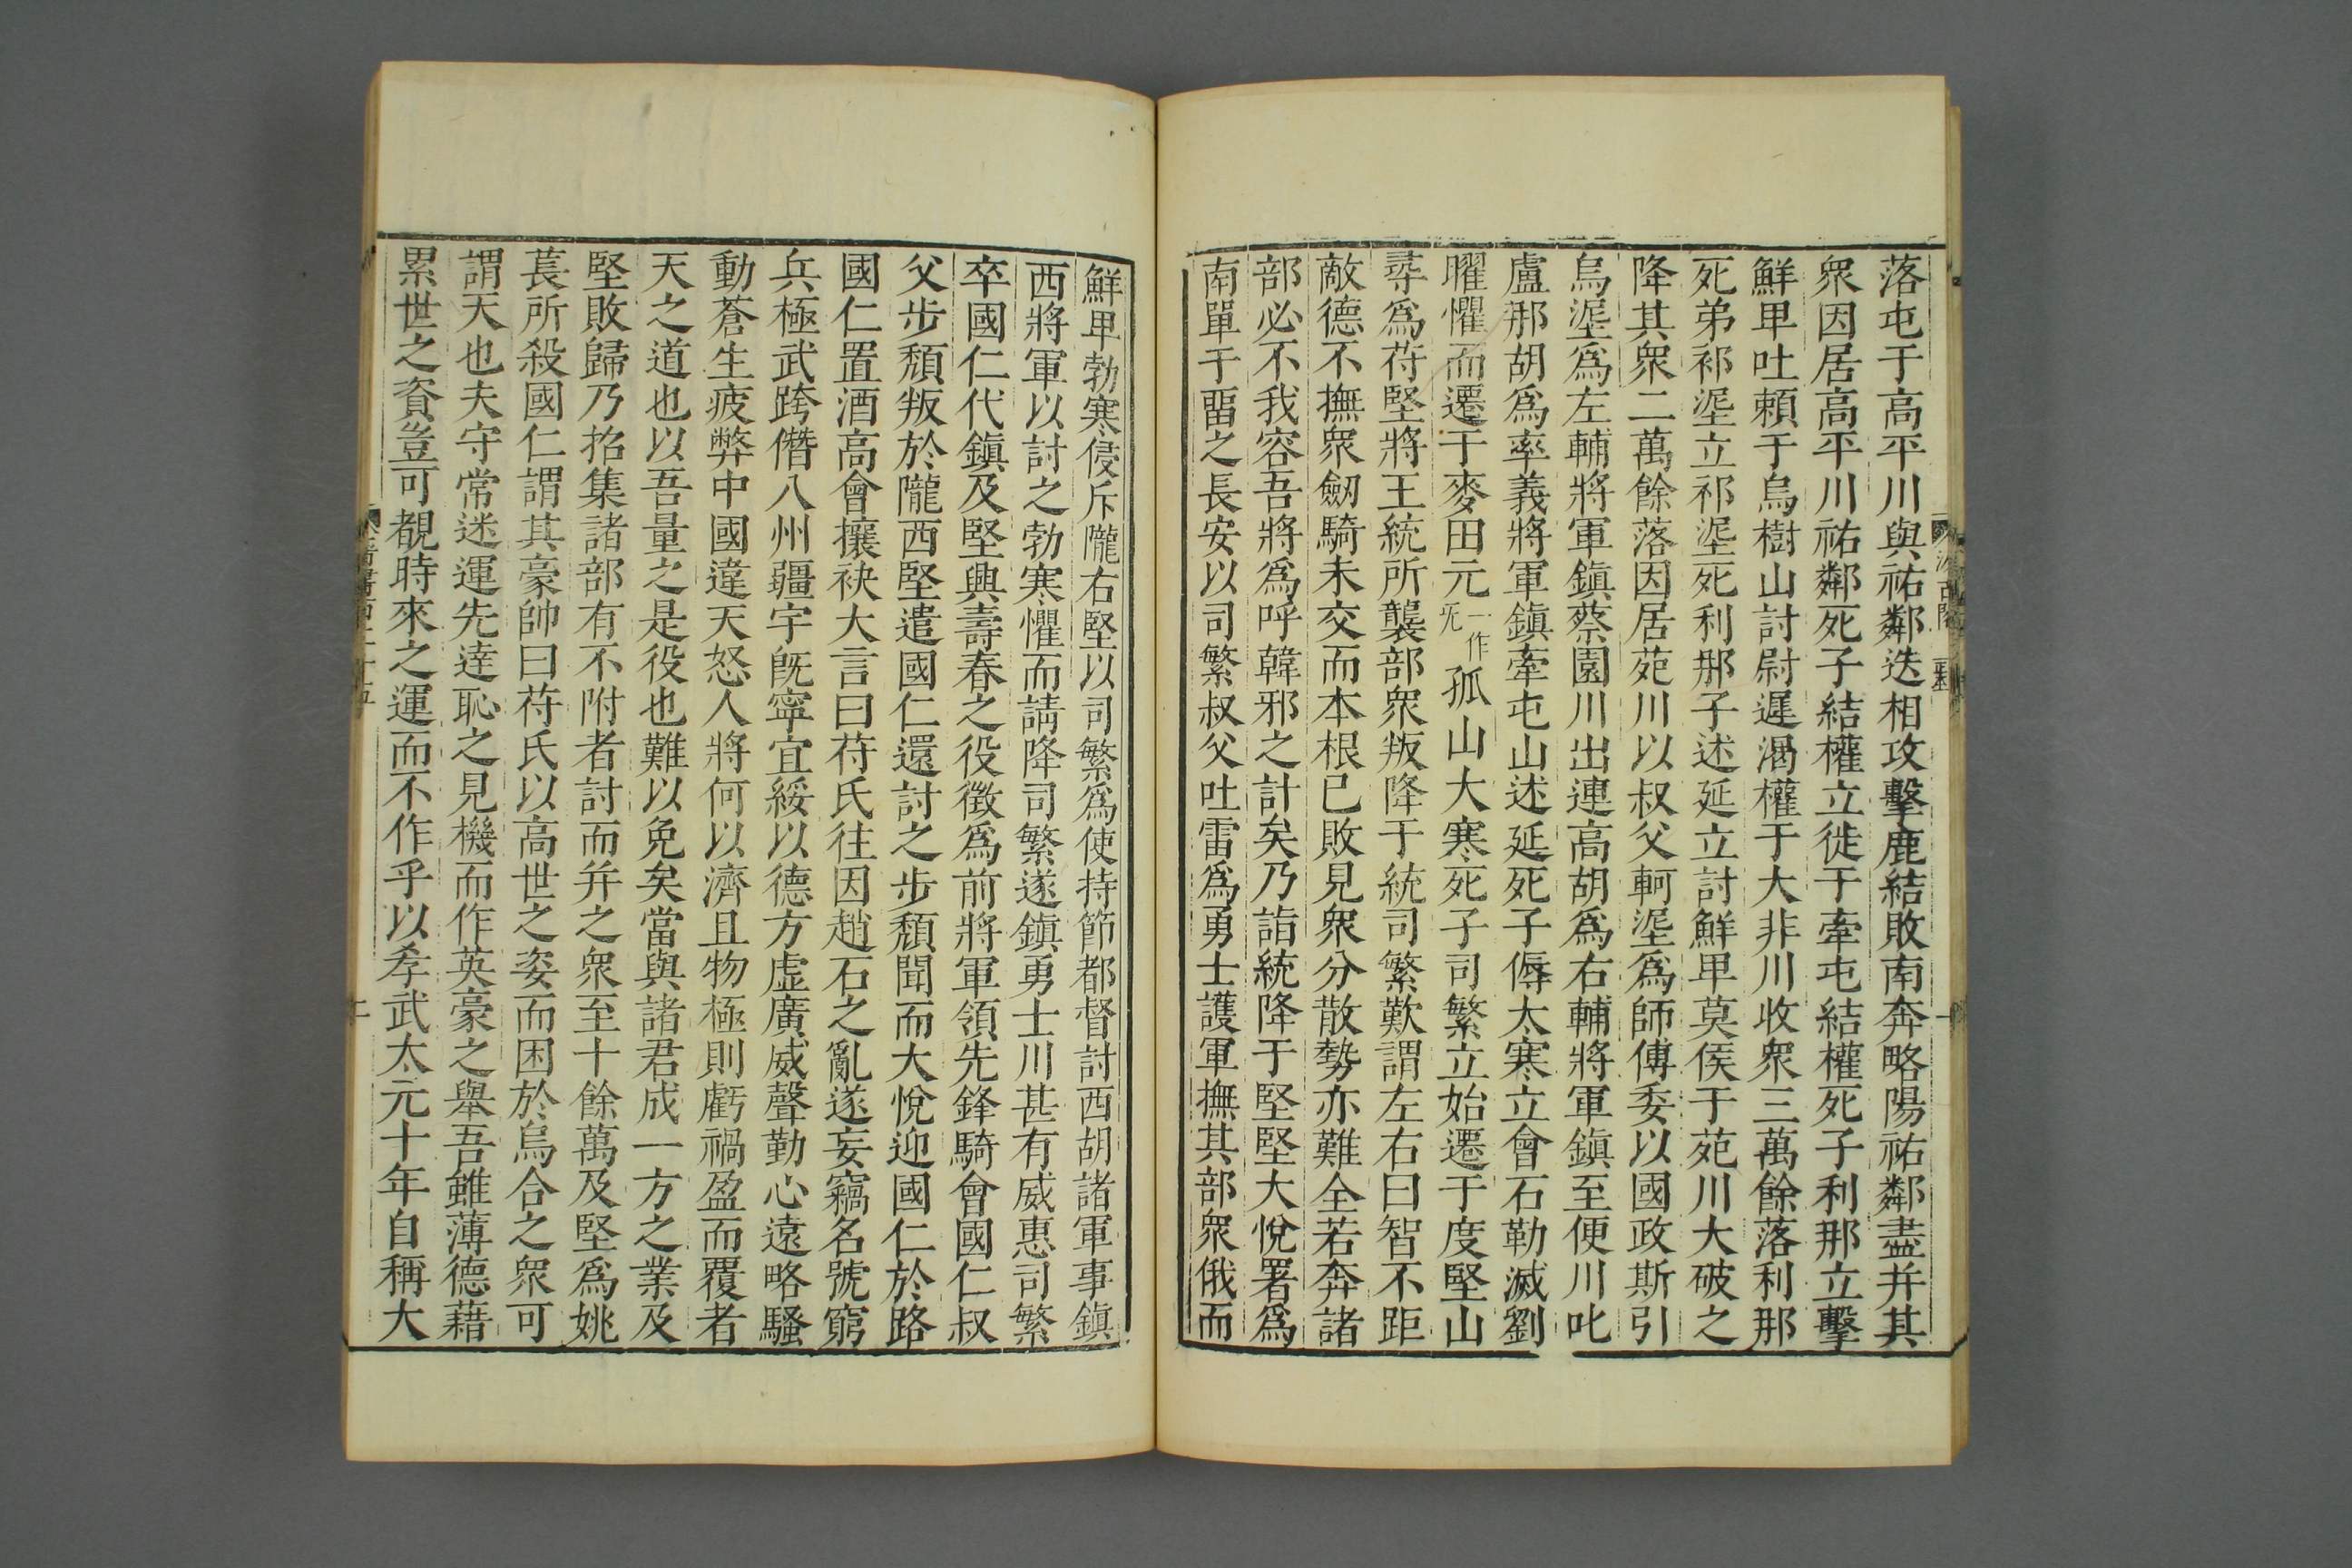 落屯于高平川與祐鄰迭相攻擊鹿結敗南奔略陽祐鄰盡并其
衆因居高平川祐鄰死子結權立徙于牽屯結權死子利那立擊
鮮卑吐賴于烏樹山討尉遲渴權于大非川收衆三萬餘落利那
死弟祁埿立祁埿死利那子述延立討鮮卑莫侯于苑川大破之
降其衆二萬餘落因居苑川以叔父軻埿爲師傅委以國政斯引
烏埿爲左輔將軍鎮蔡園川出連高胡爲右輔將軍鎮至便川叱
盧那胡爲率義將軍鎮牽屯山述延死子傉大寒立會石勒滅劉
曜懼而遷于麥田元一作无孤山大寒死子司繁立始遷于度堅山
尋爲苻堅將王統所襲部衆叛降于統司繁歎謂左右曰智不距
敵德不撫衆劒騎未交而本根已敗見衆分散勢亦難全若奔諸
部必不我容吾將爲呼韓邪之計矣乃詣統降于堅堅大悅署爲
南單于畱之長安以司繁叔父吐雷爲勇士護軍撫其部衆俄而
鮮卑勃寒侵斥隴右堅以司繁爲使持節都督討西胡諸軍事鎮
西將軍以討之勃寒懼而請降司繁遂鎮勇士川甚有威惠司繁
卒國仁代鎮及堅興壽春之役徵爲前將軍領先鋒騎會國仁叔
父步頹叛於隴西堅遣國仁還討之步頹聞而大悅迎國仁於路
國仁置酒高會攘袂大言曰苻氏往因趙石之亂遂妄竊名號窮
兵極武跨僭八州疆宇既寧宜綏以德方虛廣威聲勤心遠略騷
動蒼生疲弊中國違天怒人將何以濟且物極則虧禍盈而覆者
天之道也以吾量之是役也難以免矣當與諸君成一方之業及
堅敗歸乃招集諸部有不附者討而并之衆至十餘萬及堅爲姚
萇所殺國仁謂其豪帥曰苻氏以高世之姿而困於烏合之衆可
謂天也夫守常迷運先達恥之見機而作英豪之舉吾雖薄德藉
累世之資豈可覩時來之運而不作乎以孝武太元十年自稱大